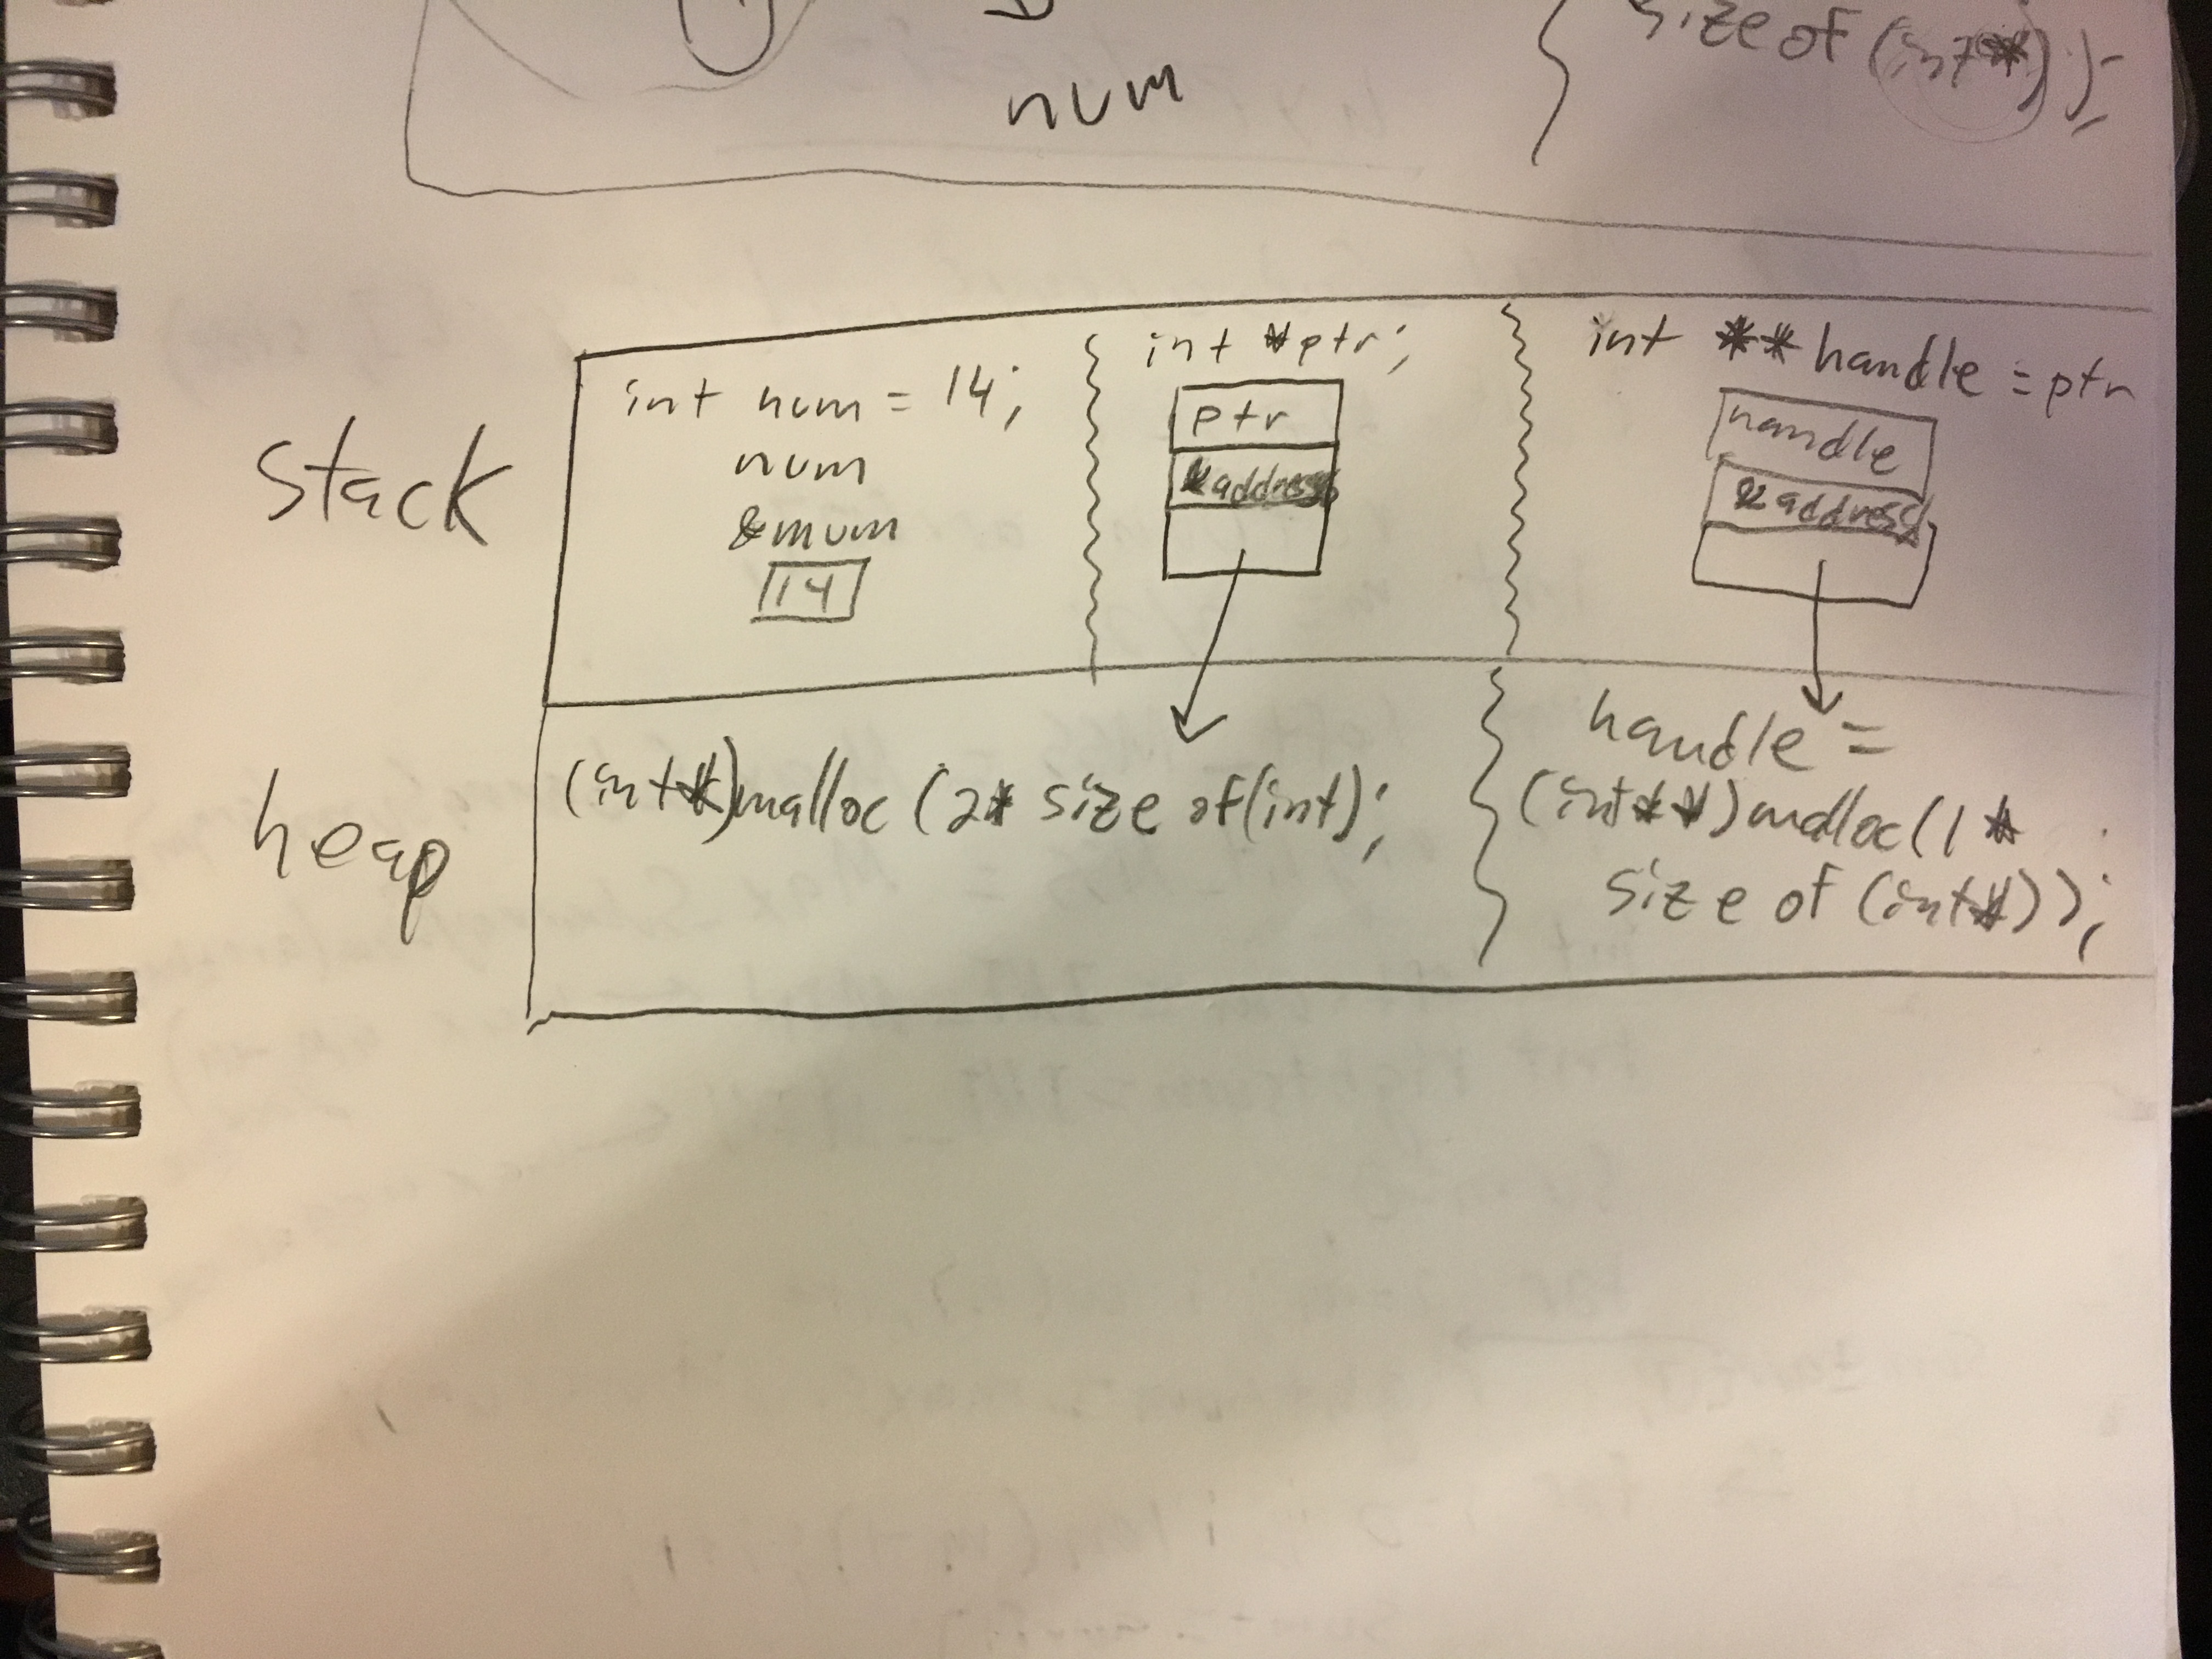 num
size of (int*));
int num = 14;
num
&num
14
int *ptr;
ptr
&address
int **handle = ptr
handle
&address
stack
heap
(int*)malloc (2* size of(int);
handle =
(int**)malloc(1*
size of (int*));